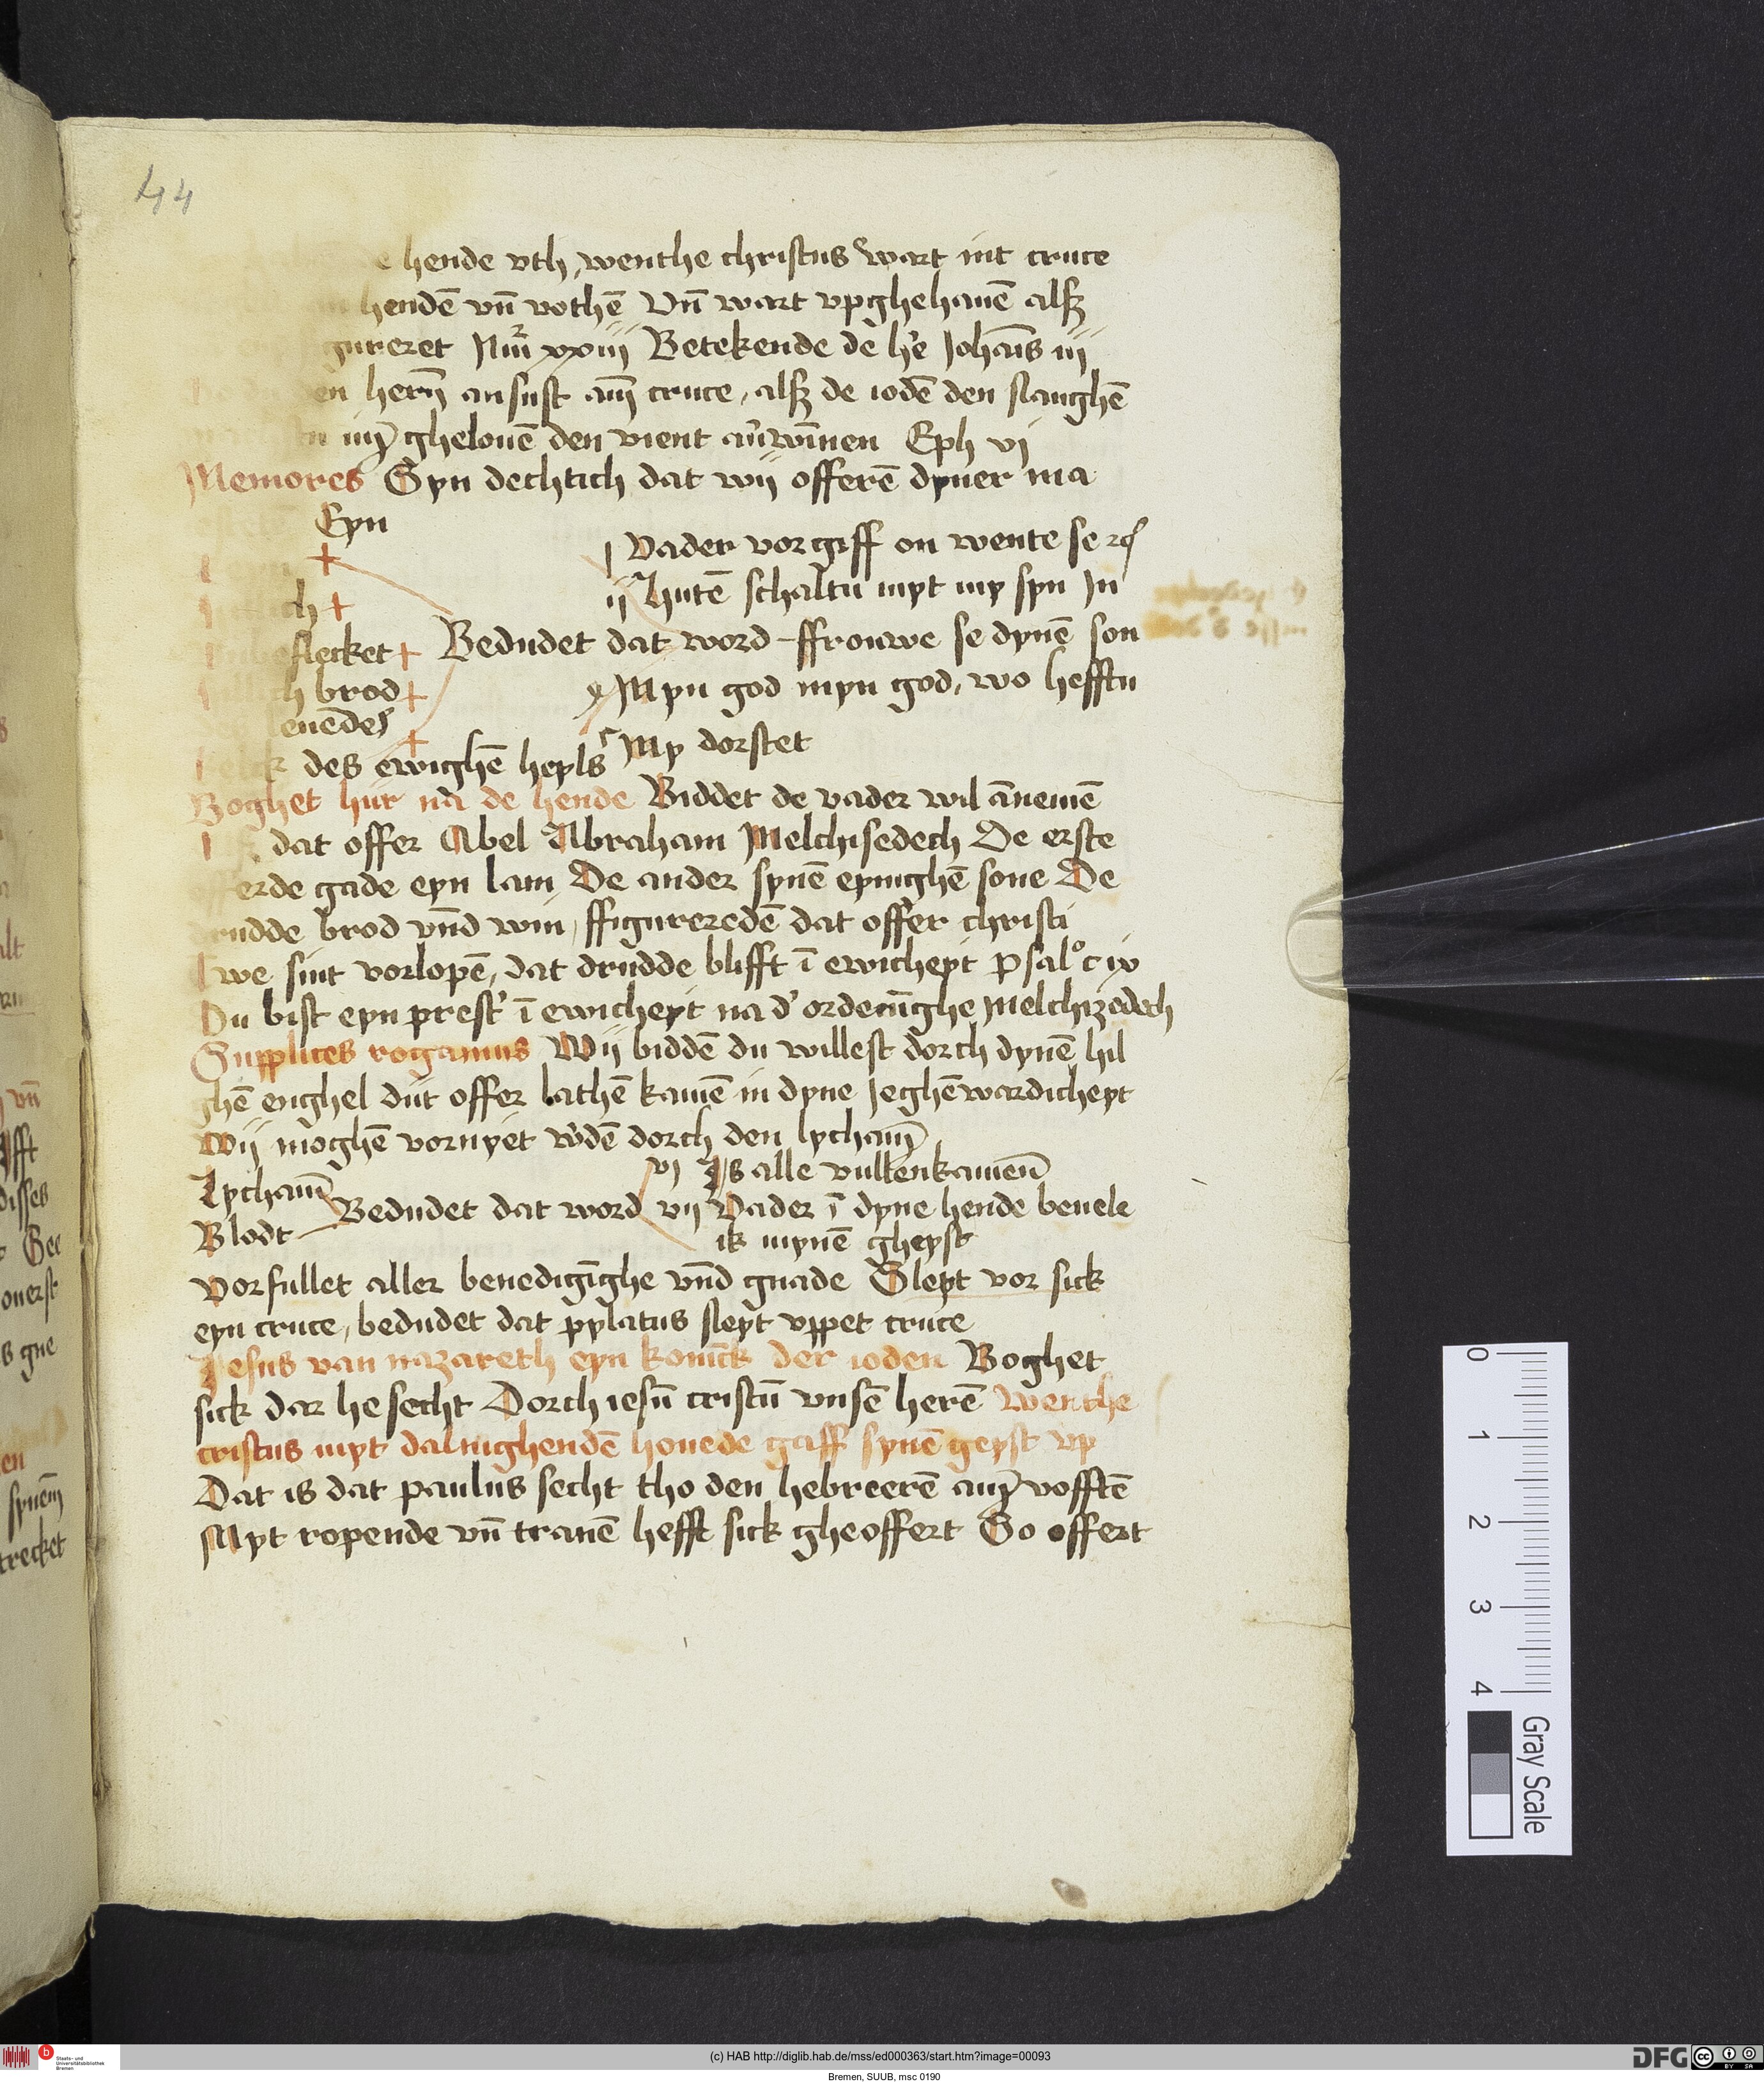 44
e hende vth, wenthe christus wart int cruce
hendē vn̄ vothē Vn̄ wart vpghehauē alsz
gureret Nūr xxiiii Betekende de h'e Joha̅is iii
en hern̄ ansust am̄ cruce, alsz de iodē den slanghē
im̄ ghelouē den vient au'wi̅nen Eph vi
Memores Syn dechtich dat wij offerē dyner ma
Eyn
+
ch +
flecket +
ch brod +
leuēdes
+
i Vader vorgiff on wente se rc
ii Hutē schaltu myt my syn Jn
Bedudet dat word ffrouwe se dynē son
Myn god myn god, wo hefftu
v My dorstet
kelck des ewighē heyls
Boghet hur na de hende Biddet de vader wil a̅nemē
dat offer Abel Abraham Melchisedech De erste
offerde gade eyn lam De ander synē eynighē sone De
drudde brod vn̄d win, ffigureredē dat offer christi
Twe sint vorlopē, dat drudde blifft ī ewicheyt Psal° c ix
Du bist eyn prest' ī ewicheyt na d' ordenīghe Melchizedech
Supplices rogamus Wij biddē du willest dorch dynē hil
ghē enghel dut offer lathē kamē in dyne Jeghēwardicheyt
Wij moghē vornyet w'dē dorch den lycham̄
Lycham̄
Blodt
Bedudet dat word
vi Js alle vullenkamen̄
vii Vader ī dyne hende beuele
ik mynē gheyst
vorfullet aller benedigīghe vn̄d gnade Sleyt vor sick
eyn cruce, bedudet dat pylatus sleyt vppet cruce
Jesus van nazareth eyn konīck der ioden Boghet
sick dar he secht Dorch iesū cristū vnsē herē Wenthe
cristus myt dalnighendē houede gaff synē geyst vp
Dat is dat paulus secht tho den hebreerē am̄ vofftē
Myt ropende vn̄ tranē hefft sick gheoffert So offert
0
1
2
3
4
Gray Scale
Staats- und
Universitätsbibliothek
Bremen
(c) HAB http://diglib.hab.de/mss/ed000363/start.htm?image=00093
DFG
CC BY SA
Bremen, SUUB, msc 0190